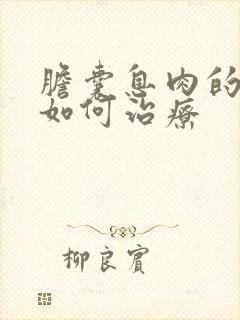 膽囊息肉的
如何治療
柳良賓